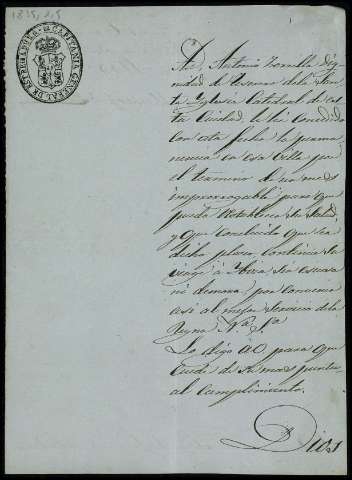 1835, 2, 5
CAPITANIA GENERAL DE ESTREMADURA
A D. Antonio Zorrilla Dig
nidad de Tesorero de la San
ta Yglesia Catedral de es
ta Ciudad le he concedido
con esta fecha la perma
nencia en esa Villa por
el termino de un mes
improrrogable para que
pueda restablecer su salud,
y que concluido que sea
dicho plazo, continue su
viage á sin escusa
ni demora, por convenir
asi al mejor servicio de la
Reyna N.ª S.ª
Lo digo á V. para que
cuide de su mas puntu
al cumplimiento.
Dios